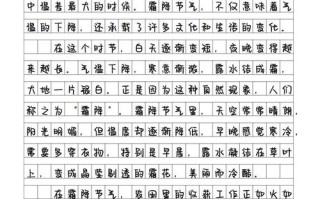 中温差最大的时候。霜降节气，不仅意味着气
温的下降，还承载了许多文化和生活的变化。
在这个时节，白天逐渐变短，夜晚变得越
来越长。气温下降，寒意渐浓，露水结成霜，
大地一片银白。正是因为这种自然现象，人们
称之为“霜降”。霜降节气里，天空常常晴朗，
阳光明媚，但温度却逐渐降低，早晚感觉寒冷，
需要多穿衣物，特别是早晨，露水凝结在草叶
上，变成晶莹剔透的霜花，美丽而冷酷。
在霜降节气，农田里的收获工作正如火如